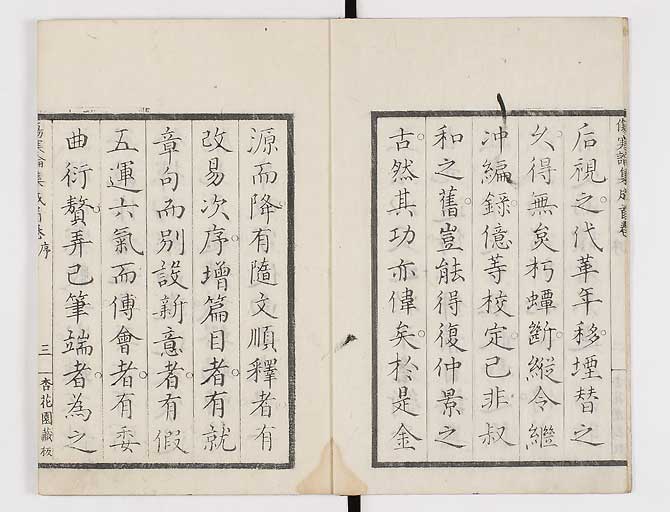 傷寒論集成首卷
后視之代革年移堙替之
久得無爰朽蟫斷縱令繼
冲編錄億等校定已非叔
和之舊豈能得復仲景之
古然其功亦偉矣於是金
源而降有隨文順釋者有
改易次序增篇目者有就
章句而別設新意者有假
五運六氣而傅會者有委
曲衍贅弄己筆端者為之
傷寒論集成首卷 序 三 杏花園藏板